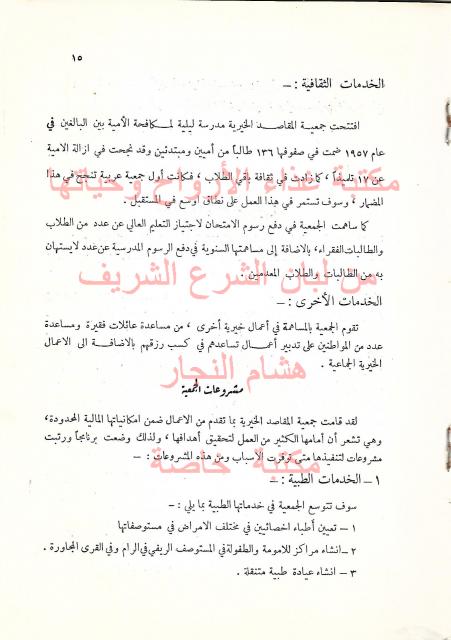 ١٥
الخدمات الثقافية : —
افتتحت جمعية المقاصد الخيرية مدرسة ليلية لمكافحة الأمية بين البالغين في
عام ١٩٥٧ ضمت في صفوفها ١٣٦ طالباً من أميين ومبتدئين وقد نجحت في ازالة الامية
مكتبة غذاء الأرواح وحياتها
عن ١٧ تلميذاً ، كما زادت في ثقافة باقي الطلاب ، فكانت أول جمعية عربية تنجح في هذا
المضمار ، وسوف تستمر في هذا العمل على نطاق أوسع في المستقبل .
كما ساهمت الجمعية في دفع رسوم الامتحان لاجتياز التعليم العالي عن عدد من الطلاب
والطالبات الفقراء ، بالاضافة إلى مساهمتها السنوية في دفع الرسوم المدرسية عن عدد لا يستهان
من لبان الشرع الشريف
به من الطالبات والطلاب المعدمين .
الخدمات الأخرى : —
تقوم الجمعية بالمساهمة في أعمال خيرية أخرى ، من مساعدة عائلات فقيرة ومساعدة
عدد من المواطنين على تدبير أعمال تساعدهم في كسب رزقهم بالاضافة الى الاعمال
الخيرية الجماعية .
هشام النجار
مشروعات الجمعية
لقد قامت جمعية المقاصد الخيرية بما تقدم من الاعمال ضمن امكانياتها المالية المحدودة ،
وهي تشعر أن أمامها الكثير من العمل لتحقيق أهدافها ، ولذلك وضعت برنامجاً ورتبت
مشروعات لتنفيذها متى توفرت الأسباب ومن هذه المشروعات : —
مكتبة خاصة
١ — الخدمات الطبية : —
سوف تتوسع الجمعية في خدماتها الطبية بما يلي : —
١ — تعيين أطباء اخصائيين في مختلف الامراض في مستوصفاتها
٢ — انشاء مراكز للامومة والطفولة في المستوصف الريفي في الرام وفي القرى المجاورة .
٣ — انشاء عيادة طبية متنقلة .